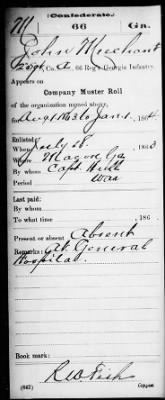 (Confederate.)
M 66 Ga.
John Merchant
Co. A, 66 Reg't Georgia Infantry.
Appears on
Company Muster Roll
of the organization named above,
for Aug 31 63 to Jan 1, 1864.
Enlisted:
When July 28, 1863
Where Macon Ga
By whom Capt.
Period War
Last paid:
By whom
To what time , 186 .
Present or absent Absent
Remarks: At General
Hospital.
Book mark:
R.W. Fish
(642) Copyist.